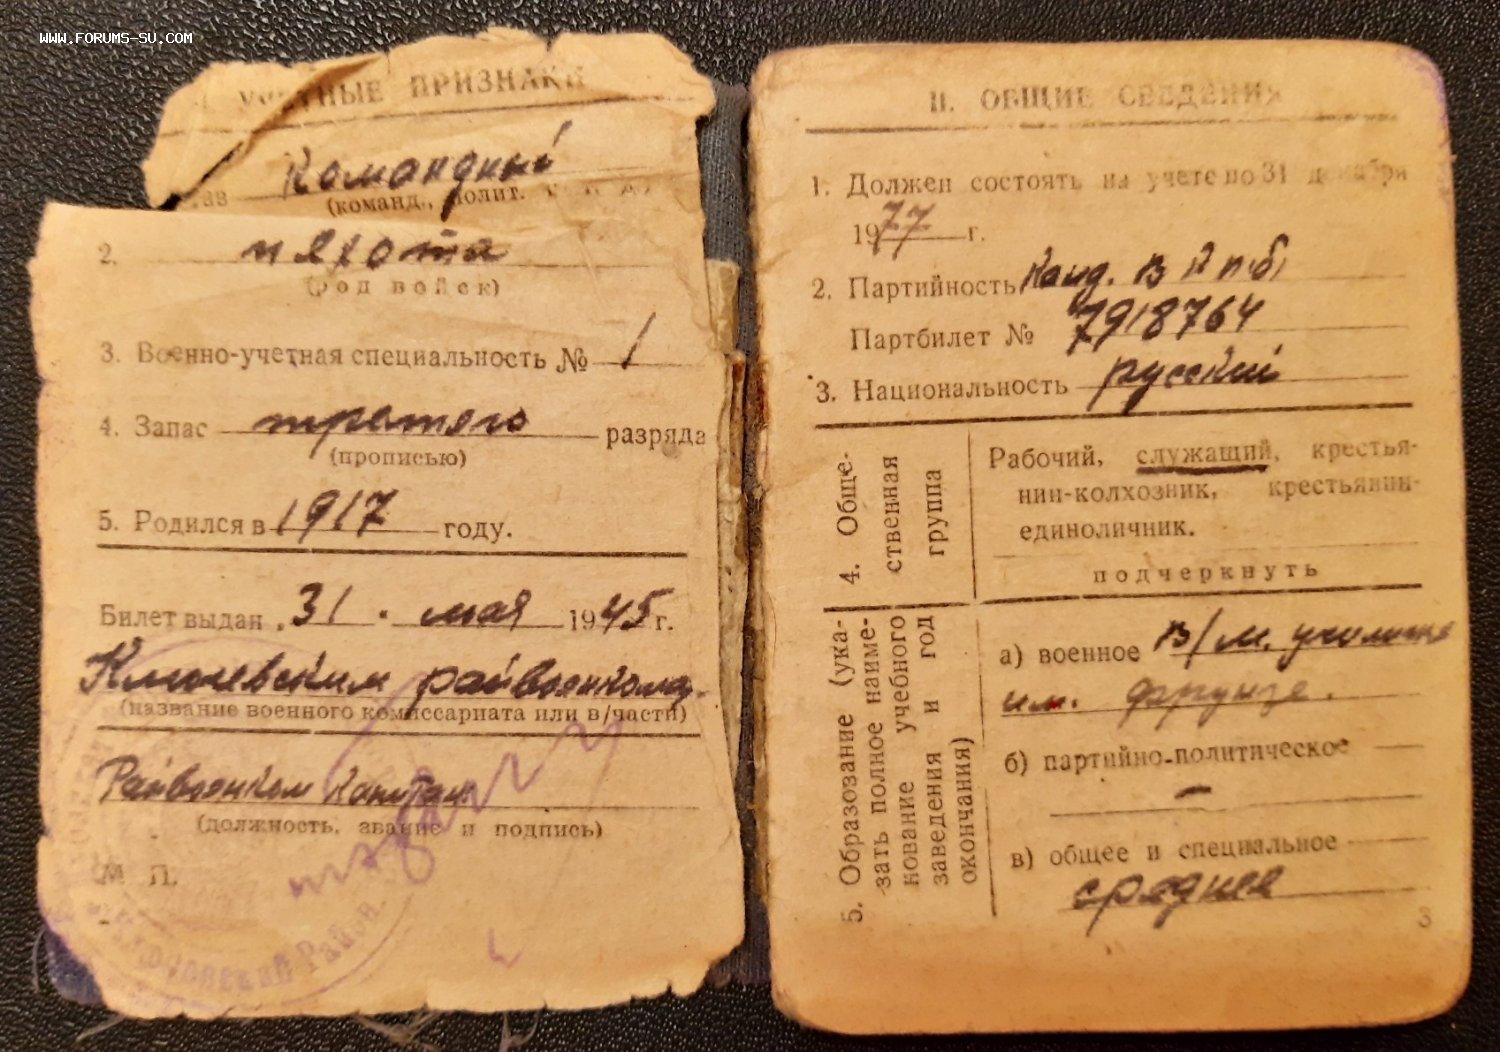 WWW.FORUMS-SU.COM
УЧЕТНЫЕ ПРИЗНАКИ
Командный
(команд., полит.
2. пехота
(род войск)
3. Военно-учетная специальность № 1
4. Запас третьего разряда
(прописью)
5. Родился в 1917 году.
Билет выдан „31. мая 1945 г.
Ключевским райвоенкомат.
(название военного комиссариата или в/части)
Райвоенком Капитан
(должность, звание и подпись)
М П.
Район.
II. ОБЩИЕ СВЕДЕНИЯ
1. Должен состоять на учете по 31 декабря
1977 г.
2. Партийность Канд. ВКП(б)
Партбилет № 7918764
3. Национальность русский
4. Обще-
ственная
группа
Рабочий, служащий, крестья-
нин-колхозник, крестьянин-
единоличник.
подчеркнуть
5. Образозание (ука-
зать полное наиме-
нование учебного
заведения и год
окончания)
а) военное в/м. училище
им. Фрунзе.
б) партийно-политическое —
—
в) общее и специальное
среднее
3